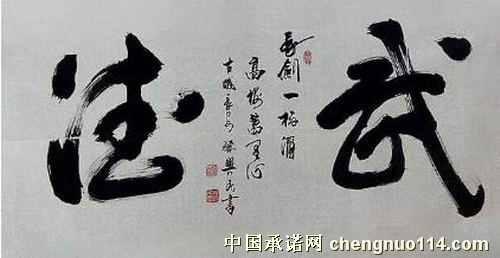 武德
長劍一杯酒
高樓萬里心
興民書
中国承诺网 chengnuo114.com